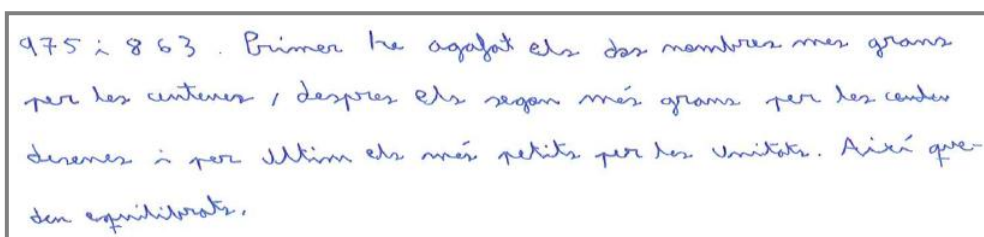 975 i 863. Primer he agafat els dos nombres mes grans
per les centenes, despres els segon més grans per les
desenes i per ultim els més petits per les unitats. Així que-
den equilibrats.